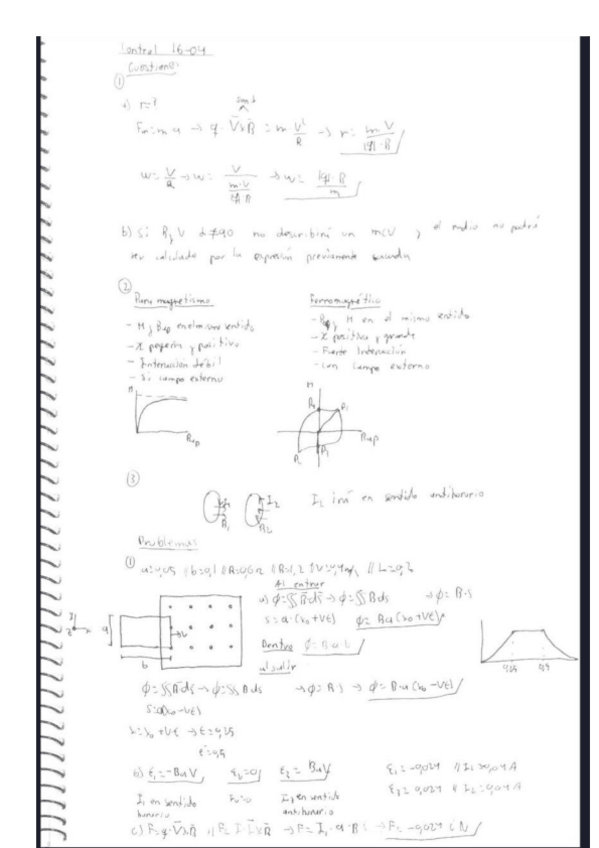 Control 16-04
Cuestiones
①
a) r=?
Fm = m·a → q·V̄xB̄ = m·V²/R → r = m·V/|q|·B
w = V/R → w = V/(m·V/|q|·B) → w = |q|·B/m
b) Si B y V α≠90 no describirá un mcu y el radio no podrá
ser calculado por la expresión previamente sacada
②
Para magnetismo
- M y Bap en el mismo sentido
- χ pequeña y positiva
- Interacción débil
- Si campo externo
M
Bap
Ferromagnético
- Bap y M en el mismo sentido
- χ positiva y grande
- Fuerte Interacción
- campo externo
M
Bap
③
B₁ I₂ B₂
I₂ irá en sentido antihorario
Problemas
① b=0,1 L=0,2
Al entrar
a) ϕ=∬B̄·ds̄ → ϕ=∬B ds → ϕ=B·S
S=a·(x₀+Vt) ϕ=Ba(x₀+Vt)
Dentro ϕ=B·a·b
al salir
a
b
V
ϕ=∬B̄·ds̄ → ϕ=∬B ds → ϕ=B·S → ϕ=B·a(x₀-Vt)
S=a(x₀-Vt)
x=x₀+Vt → t=0,25
t=0,5
b) ε₁=-BaV ε₂=0 ε₃=BaV
I₁ en sentido
horario
I₃ en sentido
antihorario
ε₁=-0,024
c) F=q·V̄xB̄ F=I·L̄xB̄ → F=I₁·a·B → F=-0,024